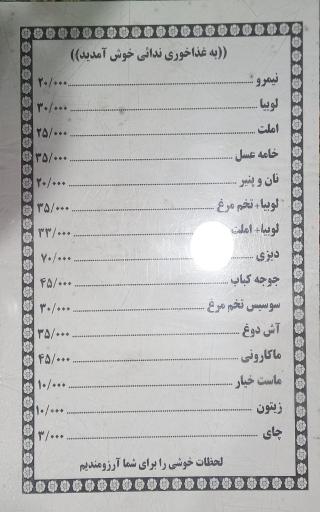 ((به غذاخوری ندائی خوش آمدید))
نیمرو ........ ۲۰/۰۰۰
لوبیا ........ ۳۰/۰۰۰
املت ........ ۲۵/۰۰۰
خامه عسل ........ ۳۵/۰۰۰
نان و پنیر ........ ۲۰/۰۰۰
لوبیا+ تخم مرغ ........ ۳۵/۰۰۰
لوبیا+ املت ........ ۳۳/۰۰۰
دیزی ........ ۷۰/۰۰۰
جوجه کباب ........ ۴۵/۰۰۰
سوسیس تخم مرغ ........ ۳۰/۰۰۰
آش دوغ ........ ۳۵/۰۰۰
ماکارونی ........ ۴۵/۰۰۰
ماست خیار ........ ۱۰/۰۰۰
زیتون ........ ۱۰/۰۰۰
چای ........ ۳/۰۰۰
لحظات خوشی را برای شما آرزومندیم